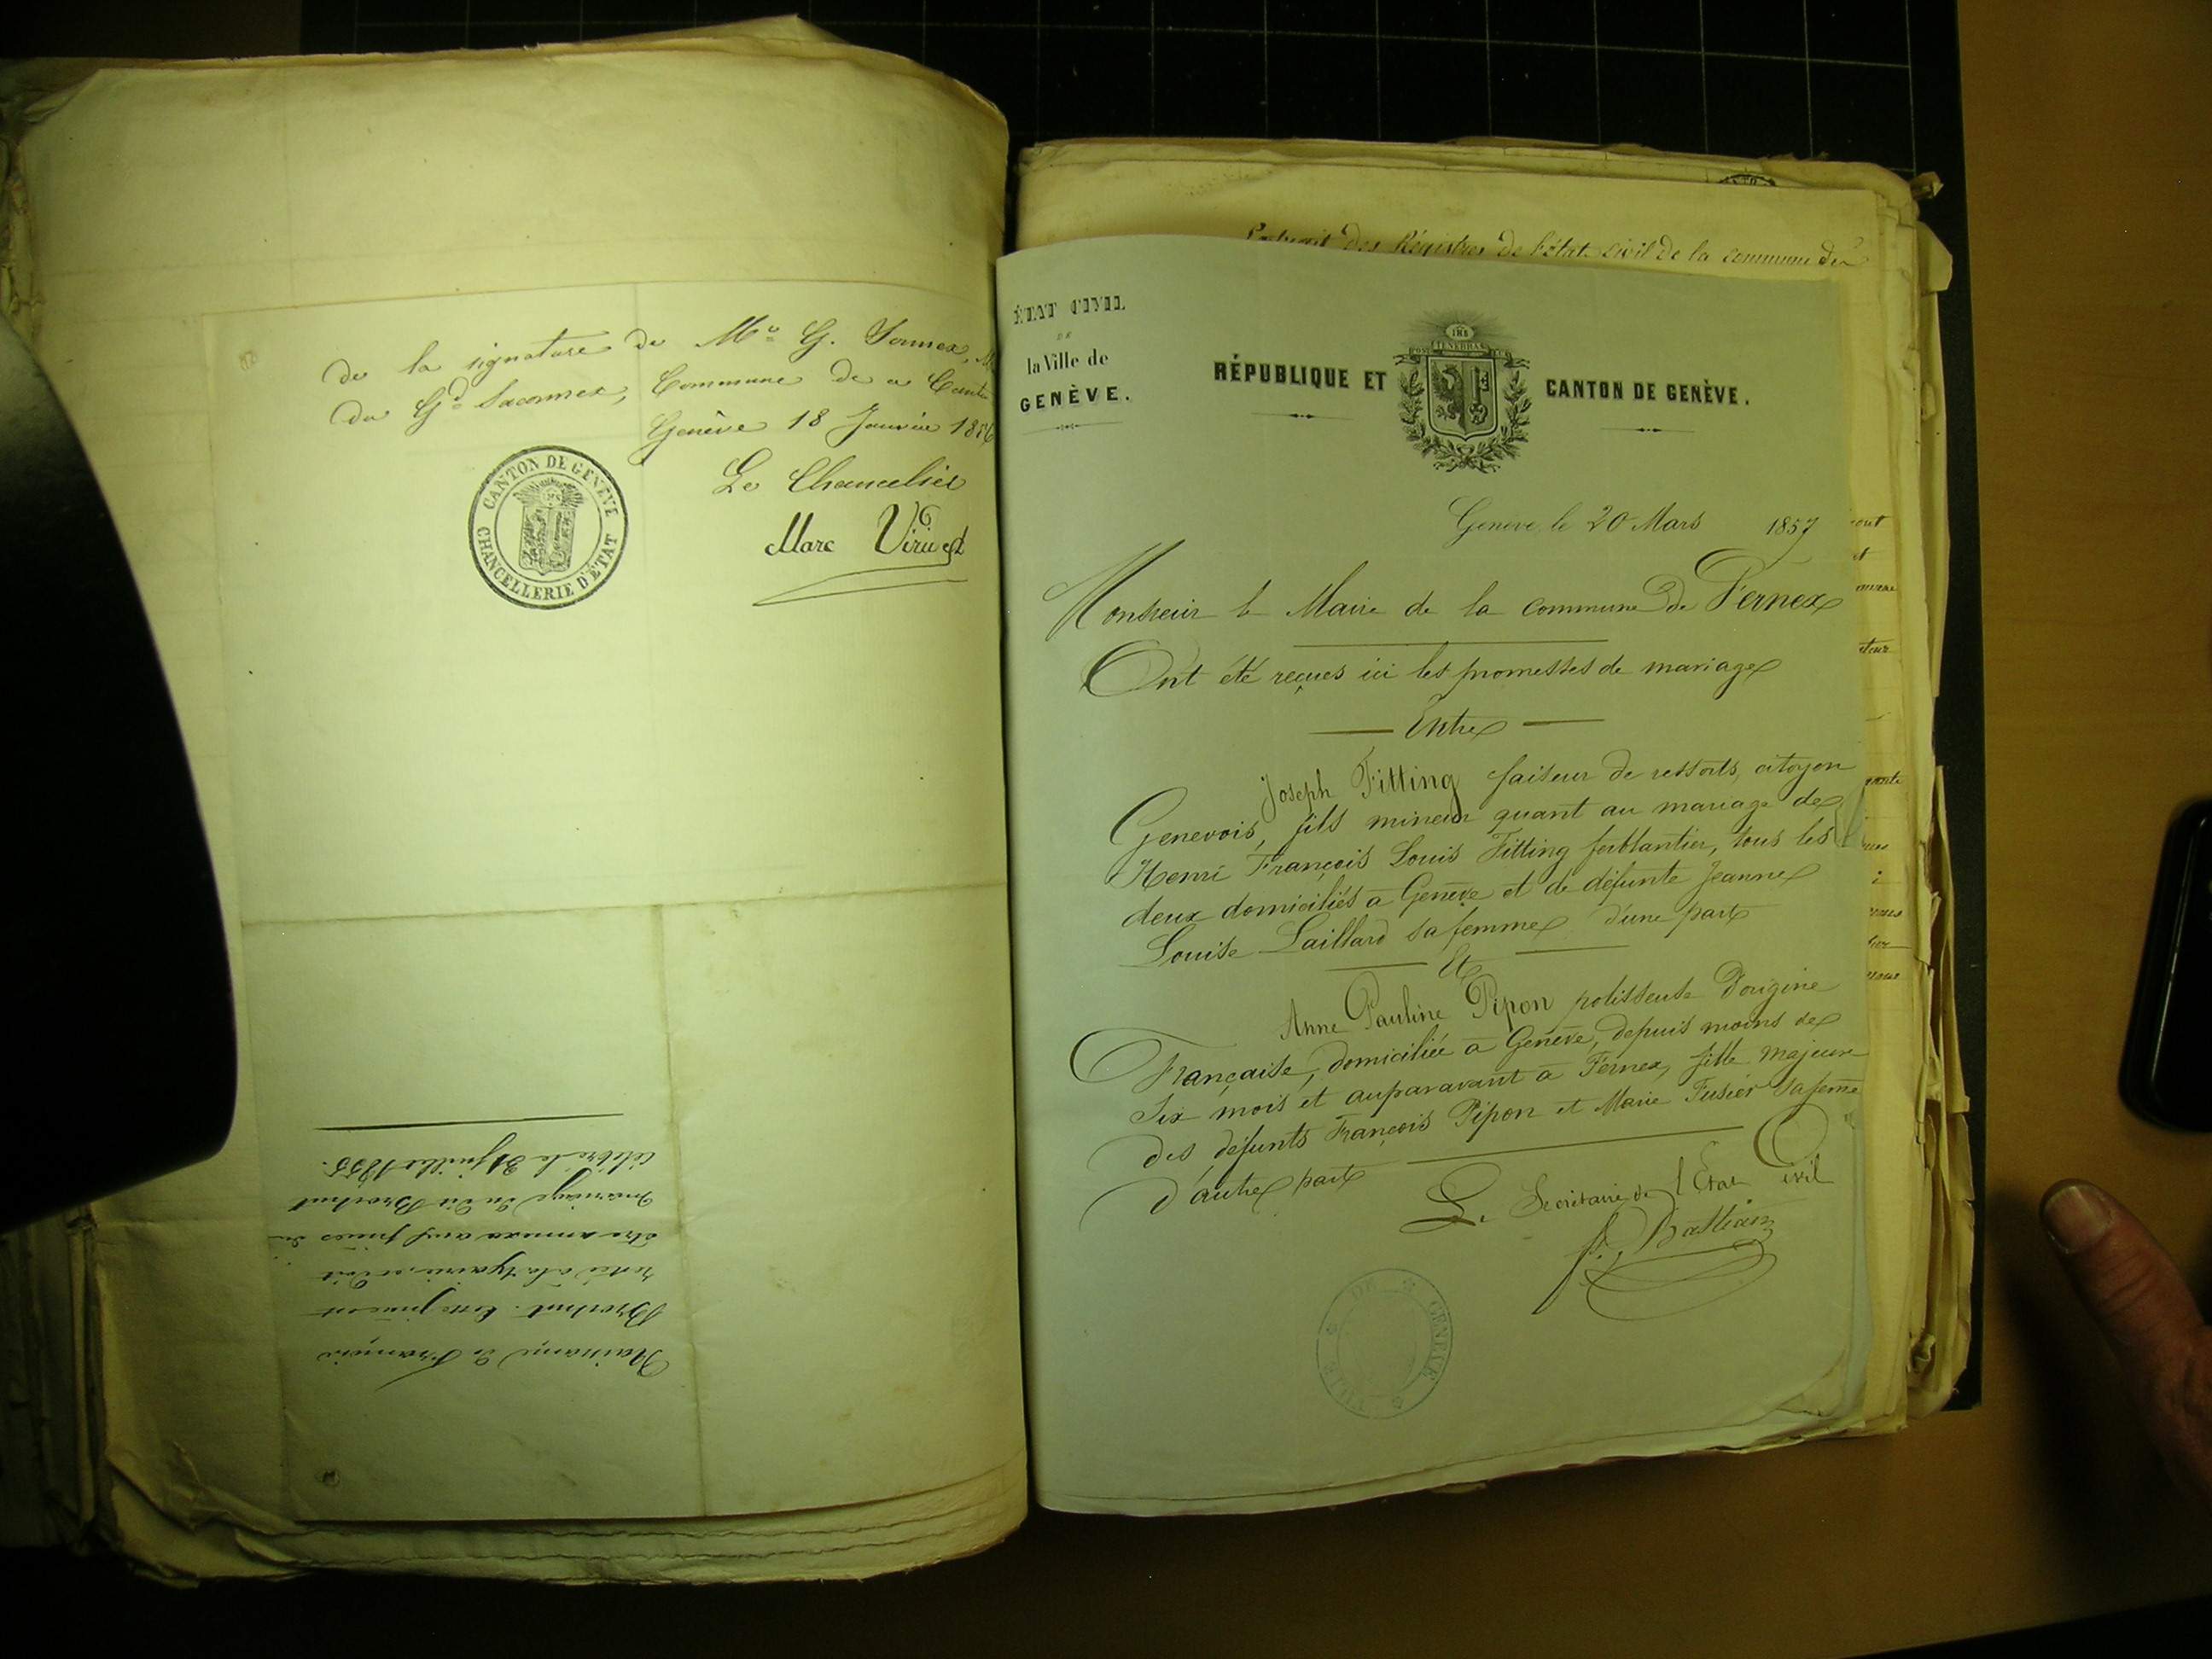 de la signature de Mr G.
du Gd Saconnex, Commune de ce Canton
Genève 18 Janvier 1856
Le Chancelier
Marc Viridet
CANTON DE GENÈVE
CHANCELLERIE D'ÉTAT
Naissance de François
Brochut. Cette pièce est
restée à la mairie, et doit
être annexée aux pièces du
mariage du dit Brochut
célébré le 31 juillet 1855.
Extrait des Régistres de l'état civil de la commune de
ÉTAT CIVIL
DE
la Ville de
GENÈVE.
RÉPUBLIQUE ET
POST TENEBRAS LUX
CANTON DE GENÈVE.
Genève le 20 Mars 1857
Monsieur le Maire de la commune de Fernex
Ont été reçues ici les promesses de mariage
Entre
Joseph Fitting faiseur de ressorts, citoyen
Genevois, fils mineur quant au mariage de
Henri François Louis Fitting ferblantier, tous les
deux domiciliés à Genève et de défunte Jeanne
Louise Laillard sa femme d'une part
Et
Anne Pauline Pipon polisseuse d'origine
Française, domiciliée à Genève, depuis moins de
Six mois et auparavant à Fernex, fille majeure
des défunts François Pipon et Marie Fusier sa feme
d'autre part
Le Secrétaire de l'Etat Civil
VILLE DE GENÈVE